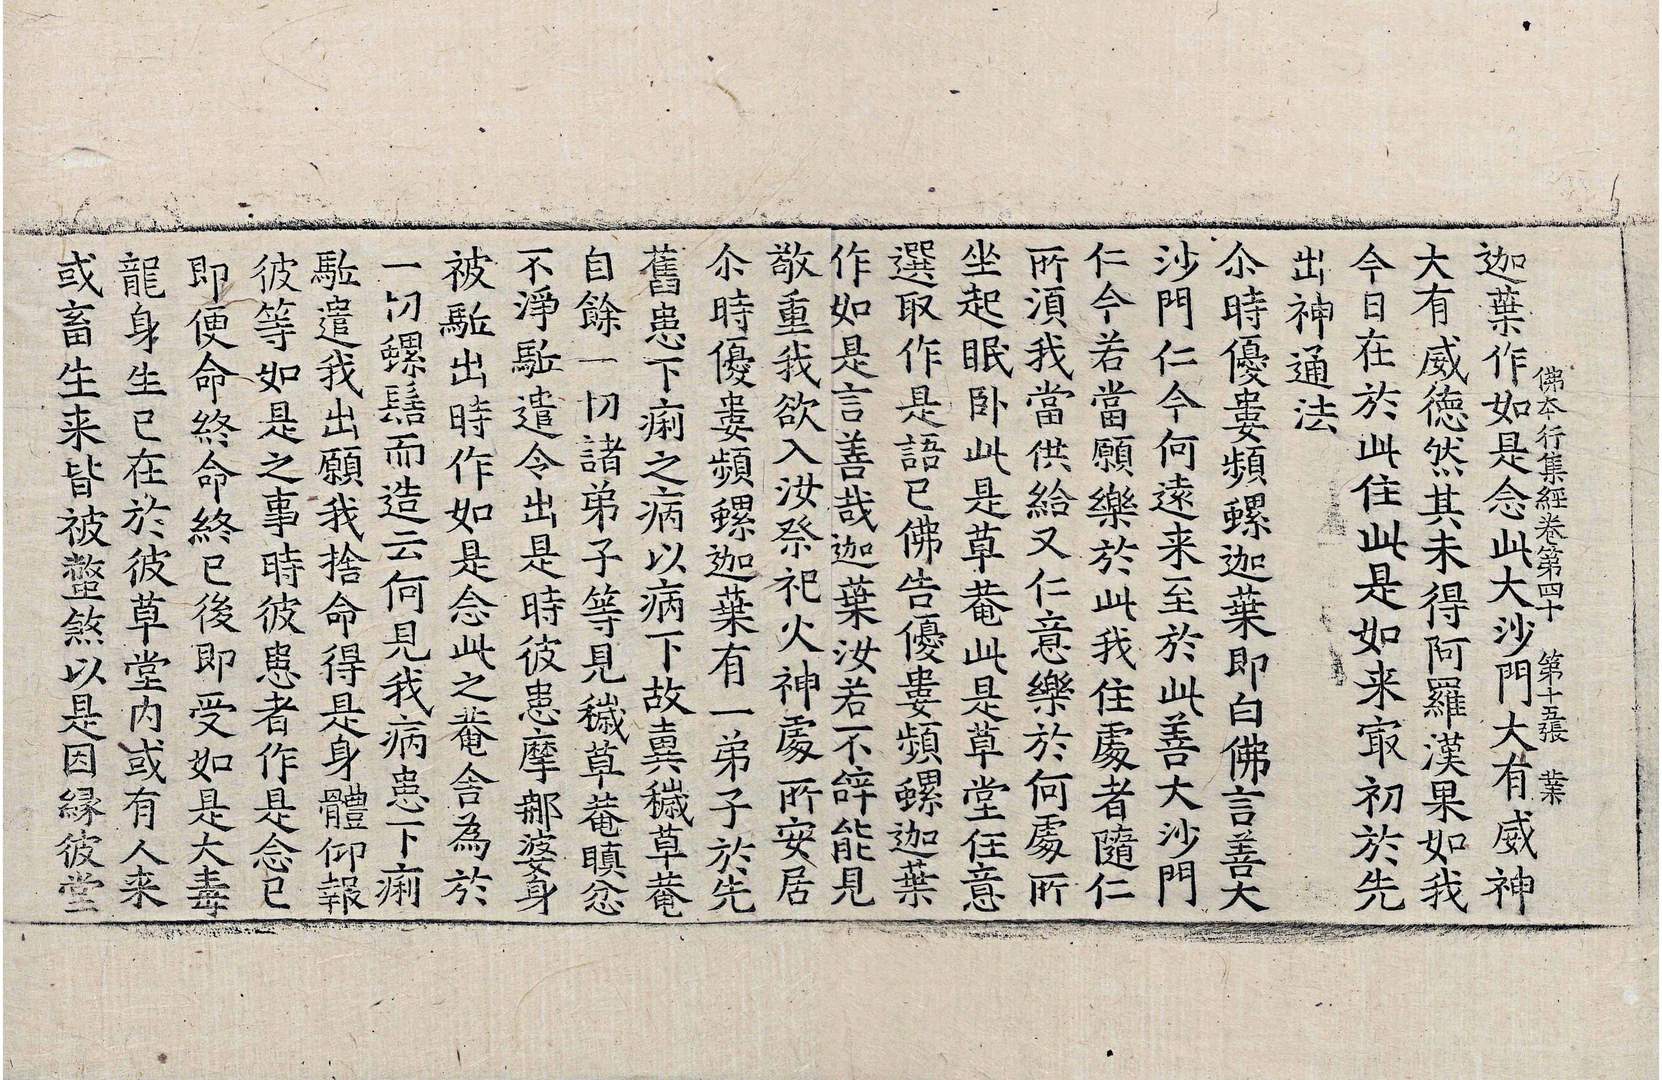 佛本行集經卷第四十　第十五張　葉
迦葉作如是念此大沙門大有威神
大有威德然其未得阿羅漢果如我
今日在於此住此是如来㝡初於先
出神通法
尒時優婁頻螺迦葉即白佛言善大
沙門仁今何遠来至於此善大沙門
仁今若當願樂於此我住處者隨仁
所須我當供給又仁意樂於何處所
坐起眠卧此是草菴此是草堂任意
選取作是語已佛告優婁頻螺迦葉
作如是言善哉迦葉汝若不辝能見
敬重我欲入汝祭祀火神處所安居
尒時優婁頻螺迦葉有一弟子於先
舊患下痢之病以病下故糞穢草菴
自餘一切諸弟子等見穢草菴瞋忿
不淨駈遣令出是時彼患摩那婆身
被駈出時作如是念此之菴舍為於
一切螺髻而造云何見我病患下痢
駈遣我出願我捨命得是身體仰報
彼等如是之事時彼患者作是念已
即便命終命終已後即受如是大毒
龍身生已在於彼草堂内或有人来
或畜生来皆被螫煞以是因緣彼堂